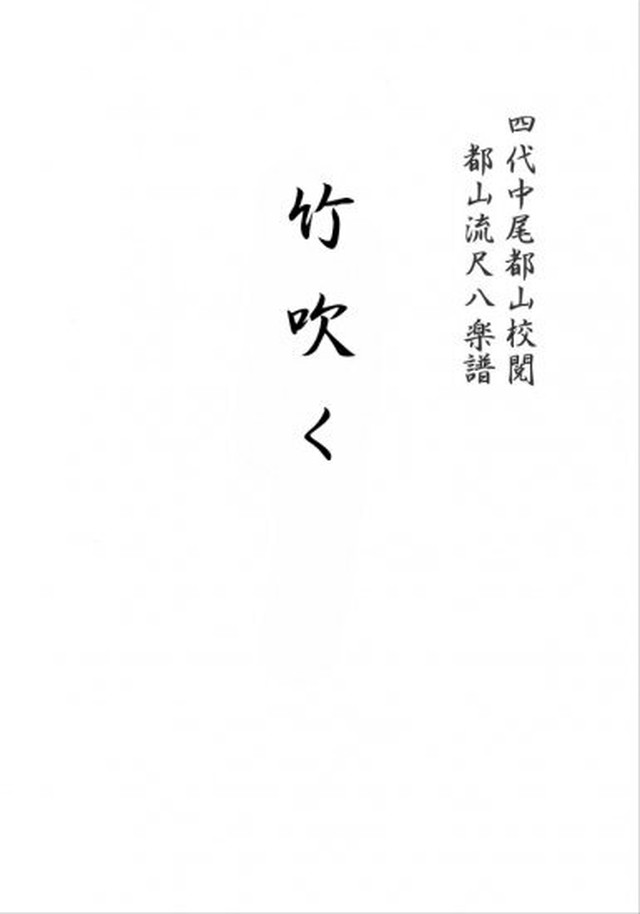 四代中尾都山校閲
都山流尺八楽譜
竹吹く